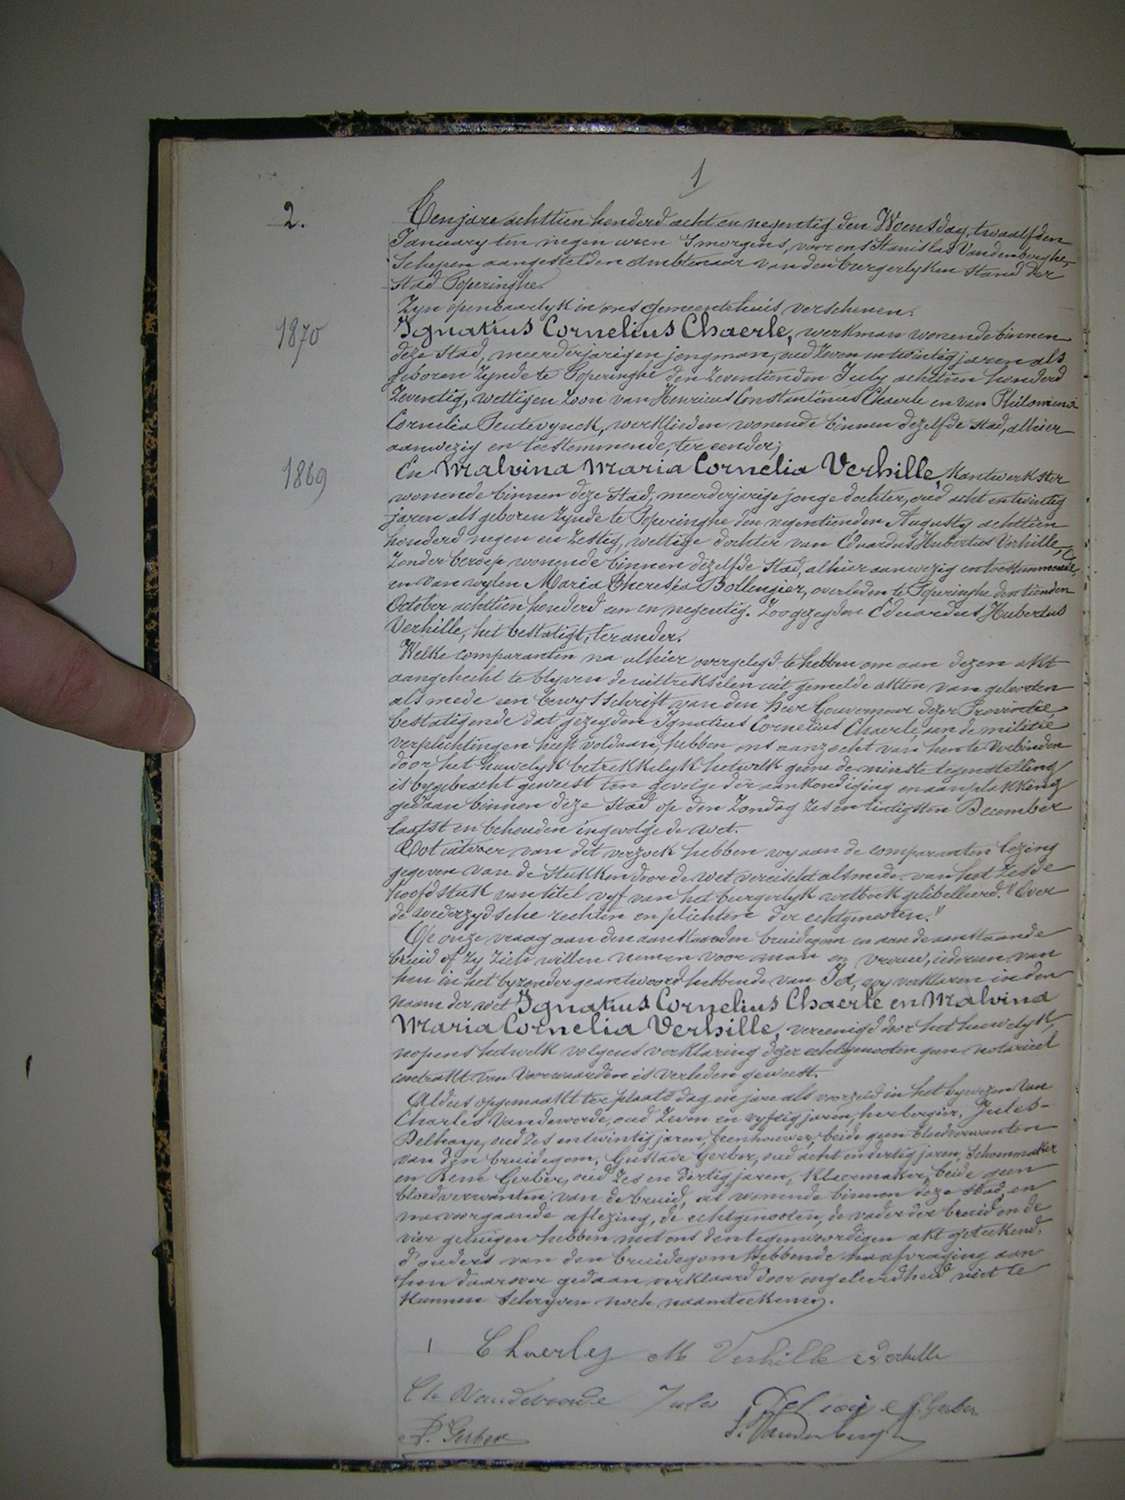 1
2.
Ten jare achttien honderd acht en negentig den Woensdag, twaalfden
January ten negen uren s'morgens, voor ons Stanislas Vandenberghe,
Schepen aangestelden Ambtenaar van den burgerlyken stand der
stad Poperinghe.
Zyn openbaarlyk in ons gemeentehuis verschenen.
1870
Ignatius Cornelius Chaerle, werkman wonende binnen
deze stad, meerderjarigen jongman, oud zeven en twintig jaren als
geboren zynde te Poperinghe den zeventienden July achttien honderd
zeventig, wettigen zoon van Henricus Constantinus Chaerle en van Philomena
Cornelia Peutevynck, werklieden wonende binnen dezelfde stad, alhier
aanwezig en toestemmende, ter eender;
1869
En Malvina Maria Cornelia Verhille, Kantwerkster
wonende binnen deze stad, meerderjarige jonge dochter, oud acht en twintig
jaren als geboren zynde te Poperinghe den negentienden Augusty achttien
honderd negen en zestig, wettige dochter van Eduardus Hubertus Verhille,
zonder beroep wonende binnen dezelfde stad, alhier aanwezig en toestemmende,
en van wylen Maria Theresia Bollengier, overleden te Poperinghe den tienden
October achttien honderd een en negentig. Zoogezegden Eduardus Hubertus
Verhille, het bestatigt, ter ander.
Welke comparanten na alhier overgelegd te hebben om aan dezen akt
aangehecht te blyven de uittrekselen uit gemelde akten van geboorten
alsmede een bewysschrift van den Heer Gouverneur dezer Provintie,
bestatigende dat gezegden Ignatius Cornelius Chaerle, aan de militie
verplichtingen heeft voldaan, hebben ons aanzocht van hun te verbinden
door het huwelyk betrekkelyk hetwelk geene de minste tegenstelling
is bygebracht geweest ten gevolge der aankondiging en aanplakking
gedaan binnen deze stad op den Zondag zes en twintigsten December
laatst en behouden ingevolge de wet.
Tot uitvoer van dit verzoek hebben wy aan de comparanten lezing
gegeven van de stukken door de wet vereischt alsmede van het zesde
hoofdstuk van titel vyf van het burgerlyk wetboek gelibelleerd: "Over
de wederzydsche rechten en plichten der echtgenooten."
Op onze vraag aan den aanstaanden bruidegom en aan de aanstaande
bruid of zy zich willen nemen voor man en vrouw, iedereen van
hen in het byzonder geantwoord hebbende van Ja, wy verklaren in den
naam der wet Ignatius Cornelius Chaerle en Malvina
Maria Cornelia Verhille, vereenigd door het huwelyk,
nopens hetwelk volgens verklaring dezer echtgenooten geen notarieel
contrakt van voorwaarden is verleden geweest.
Aldus opgemaakt ter plaats dag en jare als voorzeid in het bywezen van
Charles Vandevoorde, oud zeven en vyftig jaren, herbergier, Jules
Delhaye, oud zes en twintig jaren, beenhouwer, beide geen bloedverwanten
van den bruidegom, Gustave Gerber, oud acht en dertig jaren, Schoenmaker
en René Gerber, oud zes en dertig jaren, kleermaker, beide geen
bloedverwanten van de bruid, en wonende binnen deze stad, en
na voorgaande aflezing, de echtgenooten, de vader der bruid en de
vier getuigen hebben met ons den tegenwoordigen akt geteekend.
d'ouders van den bruidegom hebbende na afvraging aan
hen daarover gedaan verklaard door ongeleerdheid niet te
kunnen schryven noch naamteekenen.
Chaerley M Verhille E Verhille
Ch Vandevoorde Jules Delhaije G. Gerber
R. Gerber S. Vandenberghe